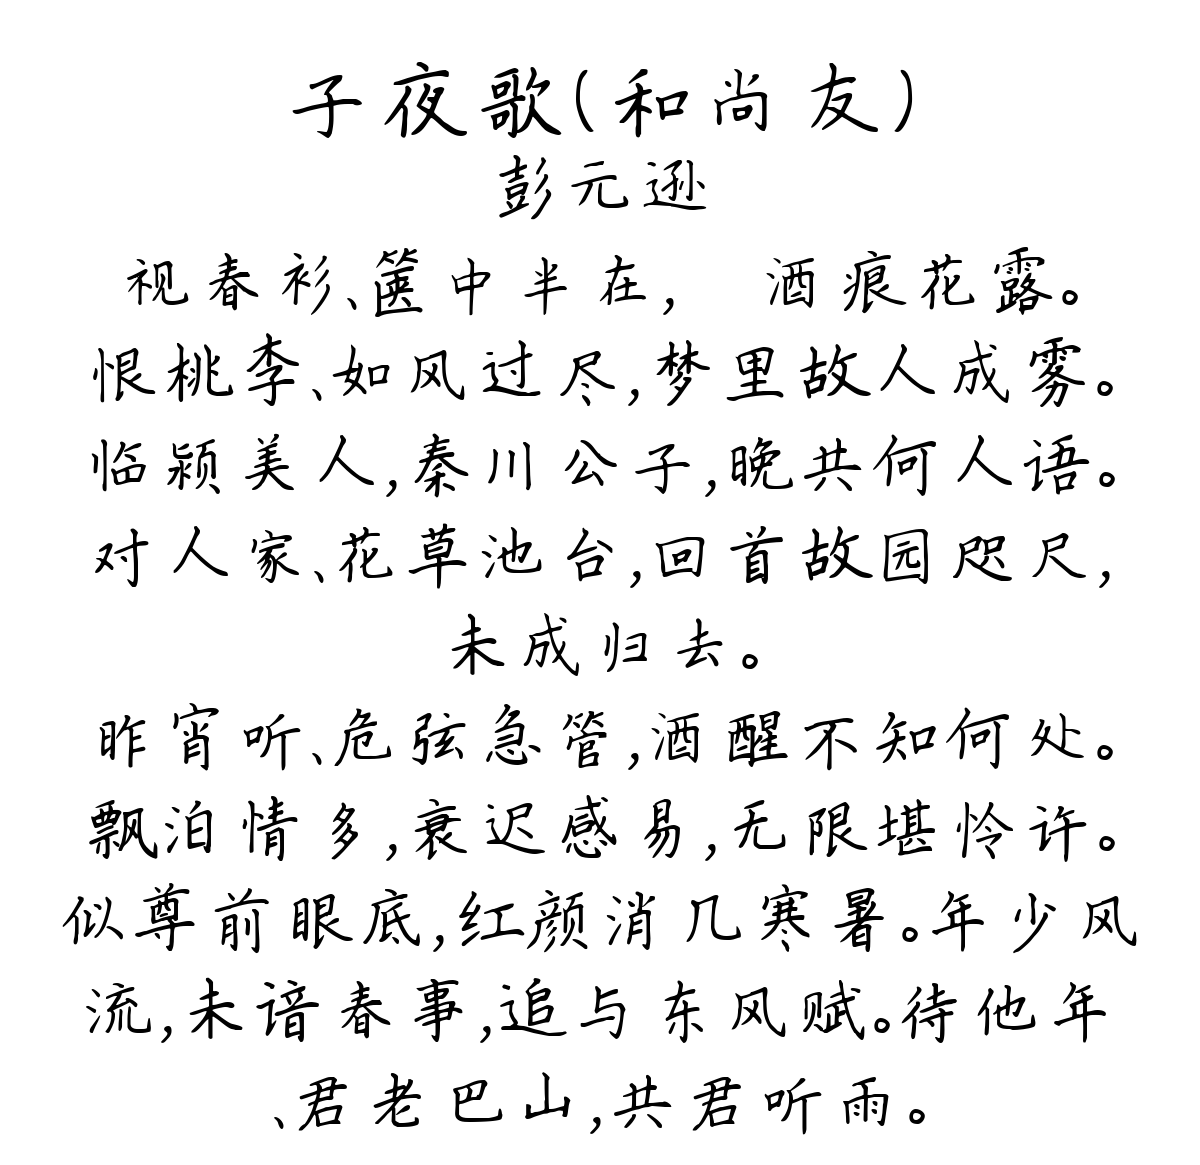 子夜歌(和尚友)
彭元逊
视春衫、箧中半在， 酒痕花露。
恨桃李、如风过尽，梦里故人成雾。
临颍美人，秦川公子，晚共何人语。
对人家、花草池台，回首故园咫尺，
未成归去。
昨宵听、危弦急管，酒醒不知何处。
飘泊情多，衰迟感易，无限堪怜许。
似尊前眼底，红颜消几寒暑。年少风
流，未谙春事，追与东风赋。待他年
、君老巴山，共君听雨。